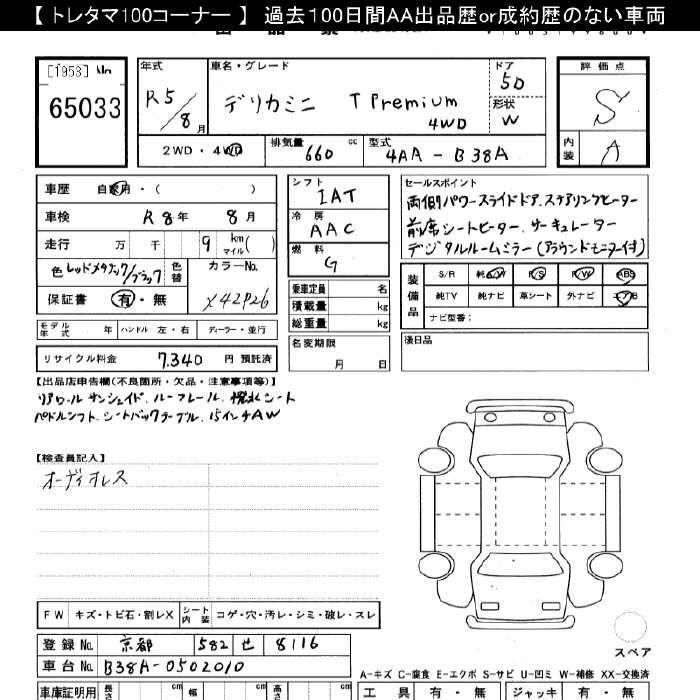 【 トレタマ100コーナー 】 過去100日間AA出品歴or成約歴のない車両
[1953] No
65033
年式
R5/8月
車名・グレード
デリカミニ T Premium
4WD
ドア
5D
形状
W
2WD・4WD
排気量 660 cc
型式 4AA-B38A
評価点
S
内装 A
車歴 自家用・( )
車検 R8年 8月
走行 万 千 9 km マイル( )
色 レッドメタリック/ブラック 色替
カラーNo.
X42P26
保証書 有・無
シフト
IAT
冷房
AAC
燃料
G
乗車定員 名
積載量 kg
総重量 kg
名変期限
月 日
セールスポイント
両側パワースライドドア.ステアリングヒーター
前席シートヒーター.サーキュレーター
デジタルルームミラー(アラウンドモニター付)
装備品
S/R 純AW P/S P/W ABS
純TV 純ナビ 革シート 外ナビ エアB
ナビ型番:
後日品
モデル年式 年 ハンドル 左・右 ディーラー・並行
リサイクル料金 7.340 円 預託済
【出品店申告欄(不良箇所・欠品・注意事項等)】
リアロールサンシェイド.ルーフレール.撥水シート
パドルシフト.シートバックテーブル.15インチAW
【検査員記入】
オーディオレス
FW キズ・トビ石・割レX シート内装 コゲ・穴・汚レ・シミ・破レ・スレ
登録No. 京都 582 せ 8116
車台No. B38A-0502010
スペア
A-キズ C-腐食 E-エクボ S-サビ U-凹ミ W-補修 XX-交換済
車庫証明用 長さ cm 幅 cm 高さ cm
工具 有・無 ジャッキ 有・無